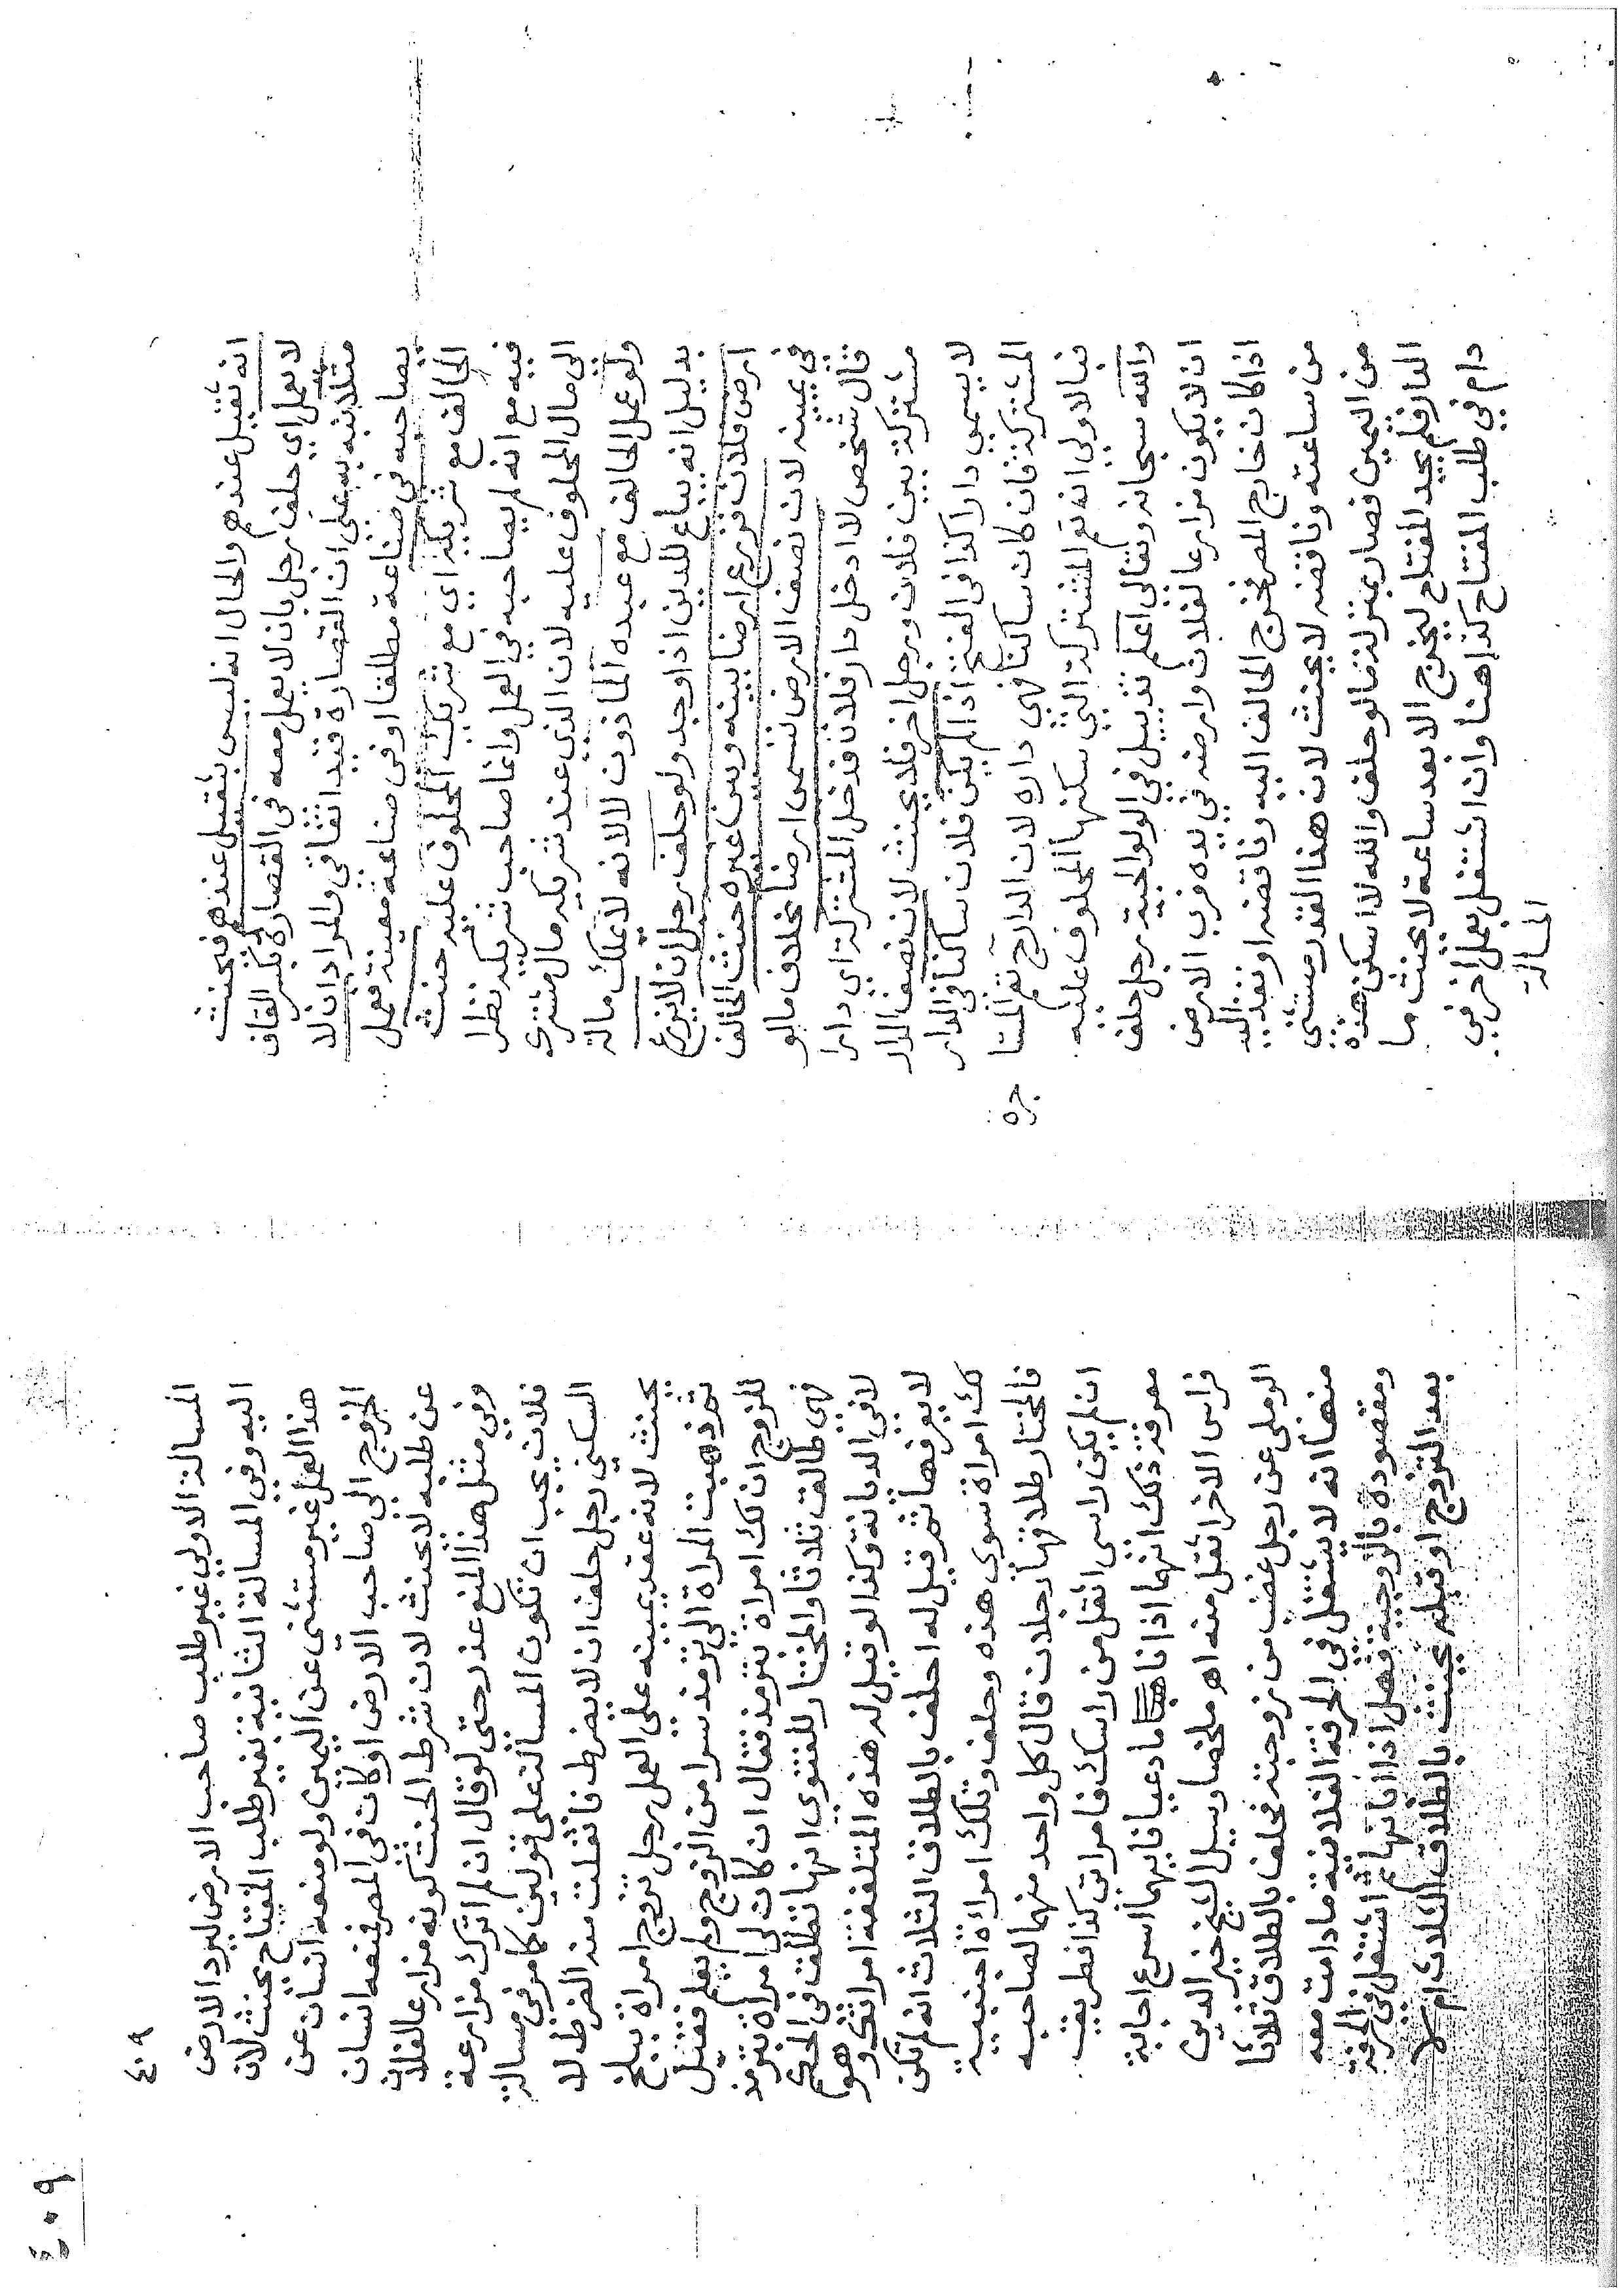 انه تقبيل عندهم والحال انه ليس بتقبيل عندهم فيحنث
لا يعمل اي حلف رجل بان لا يعمل معه في القصارة بكسر القاف
مثلا نبه به على ان القصارة قيد اتفاقي والمراد ان لا
يصاحبه في صناعة مطلقا او في صناعة معينة فعمل
الحالف مع شريكه اي مع شريك المحلوف عليه حنث
فيه مع انه لم يصاحبه في العمل وانما صاحب شريكه نظرا
الى مال المحلوف عليه لان الذي عند شريكه مال مشترك
ولو عمل الحالف مع عبده المأذون لا لانه لا يملك ماله
بدليل انه يباع للدين اذا وجد ولو حلف رجل ان لا يزرع
ارض فلان فزرع ارضا بينه وبين غيره حنث الحالف
في يمينه لان نصف الارض تسمى ارضا بخلاف ما لو
قال شخص لا ادخل دار فلان فدخل المشتركة اي دارا
مشتركة بين فلان ورجل اخر فلا يحنث لان نصف الدار
لا يسمى دارا كذا في الفتح اذا لم يكن فلان ساكنا في الدار
المشتركة فان كان ساكنا فهي داره لان الدار تعم المستا
فبالاولى انه تعم المشتركة التي سكنها المحلوف عليه
والله سبحانه وتعالى اعلم تذييل في الولوالجية رجل حلف
ان لا يكون مزارعا لفلان وارضه في يده فرب الارض
اذا كان خارج المصر فخرج الحالف اليه وناقضه او نفذ اليه
من ساعته وناقضه لا يحنث لان هذا القدر مستثنى
من اليمين فصار بمنزلة ما لو حلف والله لا اسكن هذه
الدار فلم يجد المفتاح ليخرج الا بعد ساعة لا يحنث ما
دام في طلب المفتاح كذا هنا وان اشتغل بعمل اخر في
المسالة
جره
٤٠٩
المسالة الاولى غير طلب صاحب الارض ليرد الارض
اليه وفي المسالة الثانية بغير طلب المفتاح يحنث لان
هذا العمل غير مستثنى عن اليمين ولو منعه انسان عن
الخروج الى صاحب الارض او كان في المصر فمنعه انسان
عن طلبه لا يحنث لان شرط الحنث كونه مزارعا لفلان
وفي مثل هذا المنع عذر حتى لو قال ان لم اترك مزارعة
فلان يجب ان تكون المسالة على قولين كما مر في مسالة
السكنى رجل حلف ان لا يضرط فانفلت منه الضرط لا
يحنث لانه عقد يمينه على العمل رجل تزوج امراة ببلخ
ثم ذهبت المراة الى ترمذ سرا من الزوج ولم يعلم فقيل
للزوج ان لك امراة بترمذ فقال ان كان لي امراة بترمذ
فهي طالق ثلاثا والمختار للفتوى انها تطلق في الحكم
لا في الديانة وكذا لو قيل له هذه المتلففة امراتك وهو
لا يعرفها ثم قيل له احلف بالطلاق الثلاث انه لم تكن
لك امراة سوى هذه وحلف وتلك امراة اجنبية
فالمختار طلاقها رجلان قال كل واحد منهما لصاحبه
ان لم يكن راسي اثقل من راسك فامراتي كذا فطريق
معرفة ذلك انهما اذا ناما دعيا فايهما اسرع اجابة
فراس الاخر اثقل منه اهـ ملخصا وسيل الشيخ خير الدين
الرملي عن رجل غضب من زوجته فحلف بالطلاق ثلاثا
منها انه لا يشتغل في الحرفة الفلانية ما دامت معه
ومقصوده بالزوجية فهل اذا ابانها ثم اشتغل في الحرفة
بعد التزوج او قبله يحنث بالطلاق الثلاث ام لا